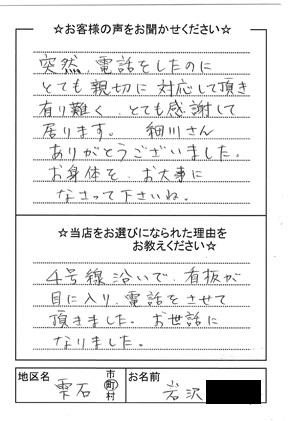 ☆お客様の声をお聞かせください☆
突然、電話をしたのに
とても親切に対応して頂き
有り難く、とても感謝して
居ります。 細川さん
ありがとうございました。
お身体を、お大事に
なさって下さいね。
☆当店をお選びになられた理由を
お教えください☆
4号線沿いで、看板が
目に入り、電話をさせて
頂きました。お世話に
なりました。
地区名 雫石 市町村 お名前 岩沢